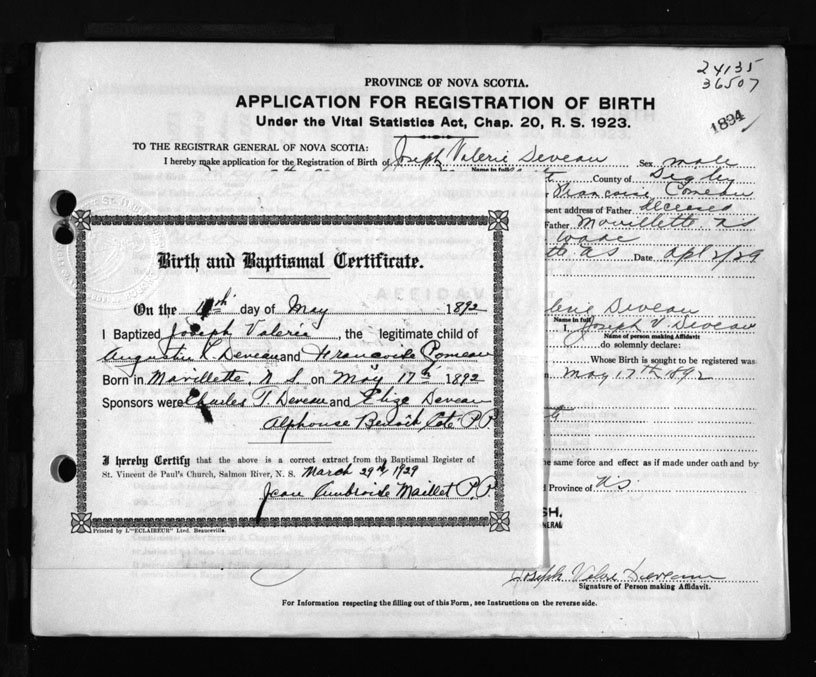 24135
36507
PROVINCE OF NOVA SCOTIA.
APPLICATION FOR REGISTRATION OF BIRTH
Under the Vital Statistics Act, Chap. 20, R. S. 1923.
1894
TO THE REGISTRAR GENERAL OF NOVA SCOTIA:
I hereby make application for the Registration of Birth of Joseph Valerie Deveau Sex male
Name in full
County of Digby
Francois Comeau
sent address of Father deceased
Father Mavillette NS
Date Apl 2/29
Birth and Baptismal Certificate.
On the day of May 1892
I Baptized Joseph Valerie, the legitimate child of
Augustin L Deveau and Francoise Comeau
Born in Mavillette, N. S. on May 17th 1892
Sponsors were Charles T. Deveau and Elize Deveau
Alphonse Benoit Cote P.P.
I hereby Certify that the above is a correct extract from the Baptismal Register of
St. Vincent de Paul's Church, Salmon River, N. S. March 29th, 1929
Jean Ambroise Maillet P.P.
Printed by L'"ECLAIREUR" Ltd. Beauceville.
Deveau
Name in full
I, Joseph V. Deveau
Name of person making Affidavit
do solemnly declare:
Whose Birth is sought to be registered was
May 17th 1892
he same force and effect as if made under oath and by
Province of NS
SH.
NERAL
Joseph Deveau
Signature of Person making Affidavit.
For Information respecting the filling out of this Form, see Instructions on the reverse side.